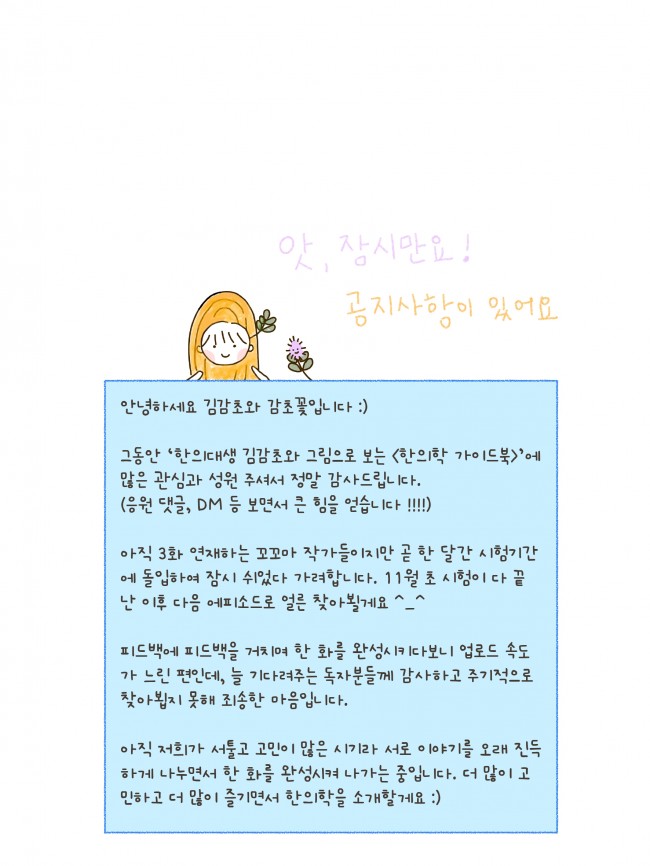 앗, 잠시만요!
공지사항이 있어요
안녕하세요 김감초와 감초꽃입니다 :)
그동안 ‘한의대생 김감초와 그림으로 보는 <한의학 가이드북>’에
많은 관심과 성원 주셔서 정말 감사드립니다.
(응원 댓글, DM 등 보면서 큰 힘을 얻습니다 !!!!)
아직 3화 연재하는 꼬꼬마 작가들이지만 곧 한 달간 시험기간
에 돌입하여 잠시 쉬었다 가려합니다. 11월 초 시험이 다 끝
난 이후 다음 에피소드로 얼른 찾아뵐게요 ^_^
피드백에 피드백을 거치며 한 화를 완성시키다보니 업로드 속도
가 느린 편인데, 늘 기다려주는 독자분들께 감사하고 주기적으로
찾아뵙지 못해 죄송한 마음입니다.
아직 저희가 서툴고 고민이 많은 시기라 서로 이야기를 오래 진득
하게 나누면서 한 화를 완성시켜 나가는 중입니다. 더 많이 고
민하고 더 많이 즐기면서 한의학을 소개할게요 :)